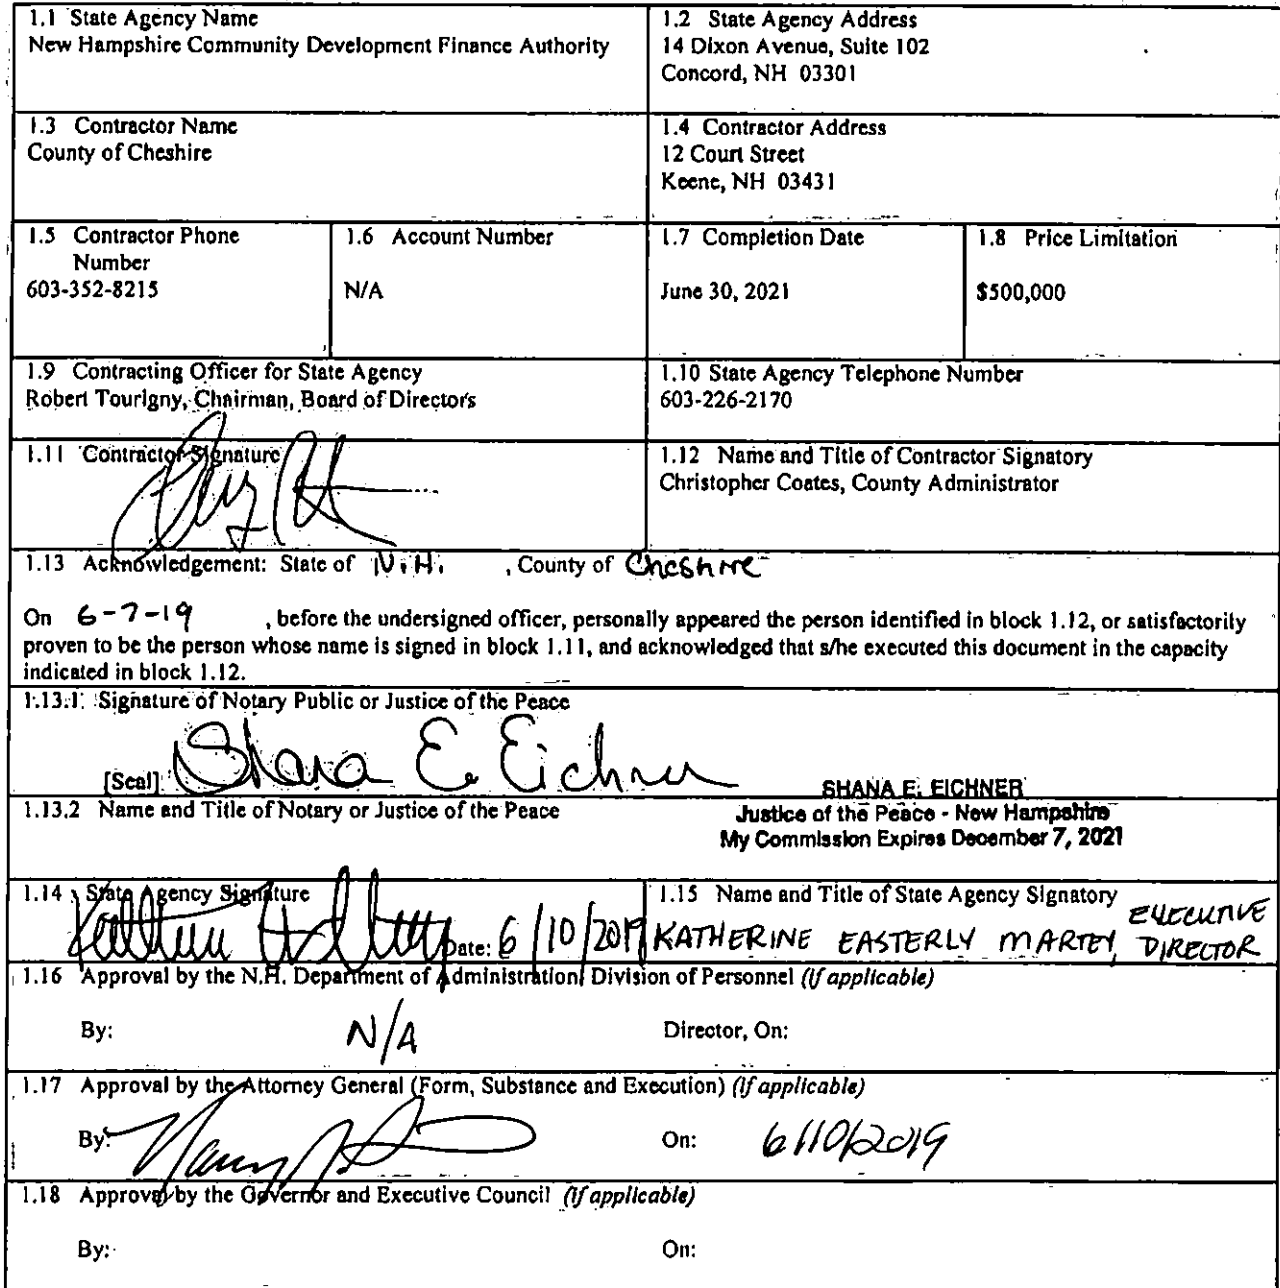 1.1 State Agency Name
New Hampshire Community Development Finance Authority
1.2 State Agency Address
14 Dixon Avenue, Suite 102
Concord, NH 03301
1.3 Contractor Name
County of Cheshire
1.4 Contractor Address
12 Court Street
Keene, NH 03431
1.5 Contractor Phone
Number
603-352-8215
1.6 Account Number
N/A
1.7 Completion Date
June 30, 2021
1.8 Price Limitation
$500,000
1.9 Contracting Officer for State Agency
Robert Tourigny, Chairman, Board of Directors
1.10 State Agency Telephone Number
603-226-2170
1.11 Contractor Signature
1.12 Name and Title of Contractor Signatory
Christopher Coates, County Administrator
1.13 Acknowledgement: State of N.H. , County of Cheshire
On 6-7-19 , before the undersigned officer, personally appeared the person identified in block 1.12, or satisfactorily
proven to be the person whose name is signed in block 1.11, and acknowledged that s/he executed this document in the capacity
indicated in block 1.12.
1.13.1 Signature of Notary Public or Justice of the Peace
[Seal] Shana E. Eichner
SHANA E. EICHNER
1.13.2 Name and Title of Notary or Justice of the Peace
Justice of the Peace - New Hampshire
My Commission Expires December 7, 2021
1.14 State Agency Signature
Date: 6/10/2019
1.15 Name and Title of State Agency Signatory
KATHERINE EASTERLY MARTEY, EXECUTIVE
DIRECTOR
1.16 Approval by the N.H. Department of Administration, Division of Personnel (if applicable)
By: N/A Director, On:
1.17 Approval by the Attorney General (Form, Substance and Execution) (if applicable)
By: On: 6/10/2019
1.18 Approval by the Governor and Executive Council (if applicable)
By: On: